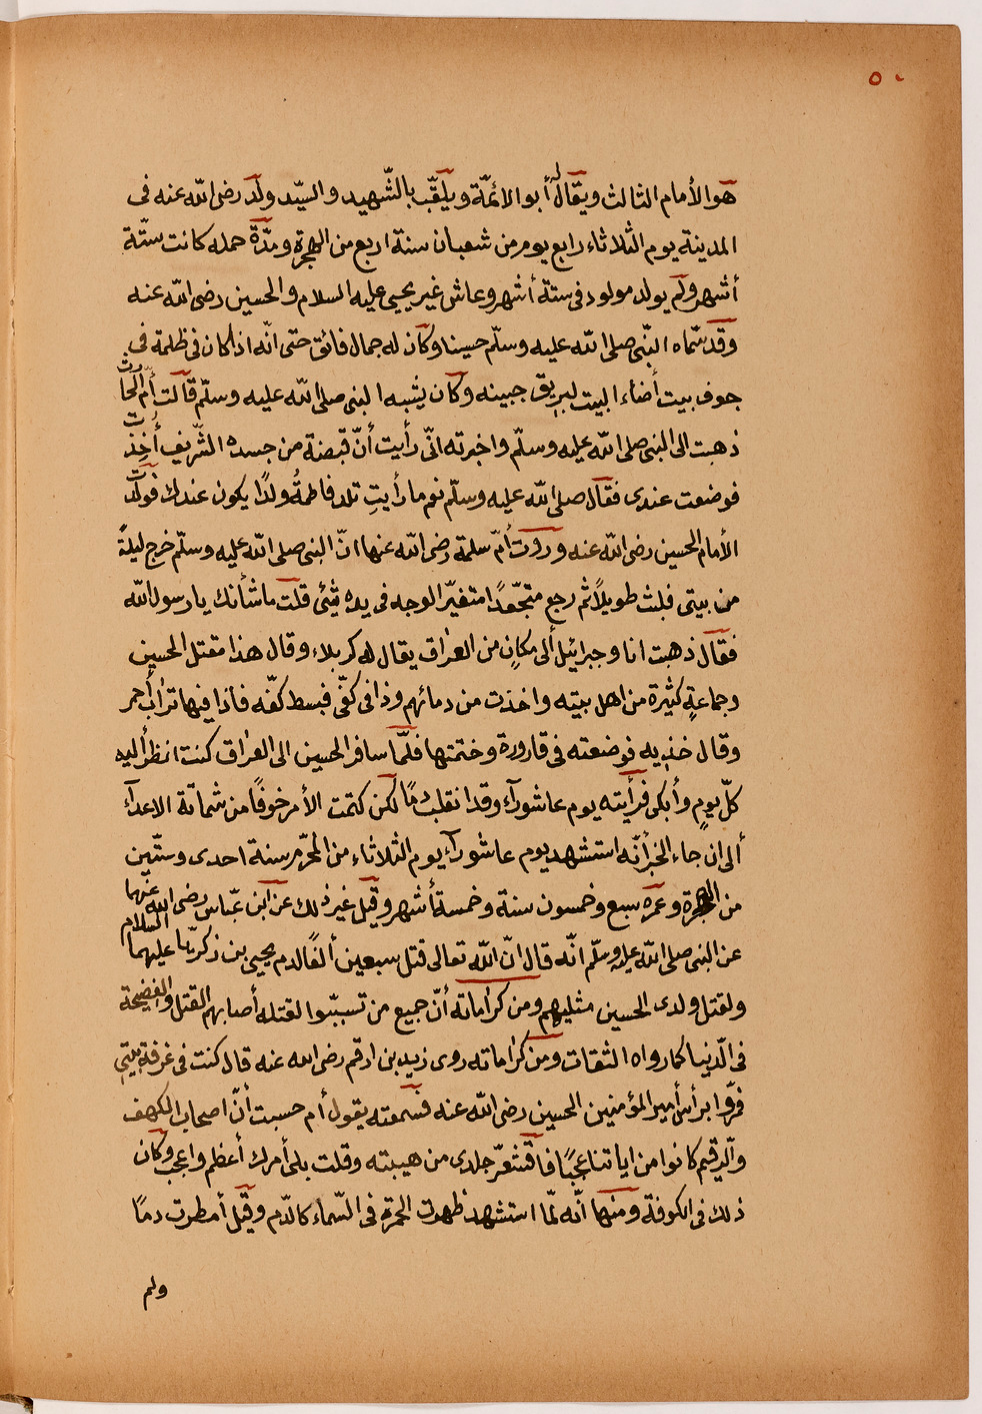 ٥٠
هو الأمام الثالث ويقال له أبو الائمّة ويلقّب بالشّهيد والسيّد ولد رضى الله عنه فى
المدينة يوم الثلاثاء رابع يوم من شعبان سنة اربع من الهجرة ومدّة حمله كانت ستّة
أشهر ولم يولد مولود فى ستة أشهر وعاش غير يحيى عليه السلام والحسين رضى الله عنه
وقد سمّاه النّبى صلى الله عليه وسلّم حسينا وكان له جمال فائق حتى انّه اذا كان فى ظلمة فى
جوف بيت أضاء البيت لبريق جبينه وكان يشبه النبى صلى الله عليه وسلّم قالت أم الحارث
ذهبت الى النبى صلى الله عليه وسلّم واخبرته انّى رأيت أنّ قبضة من جسده الشّريف أخِذت
فوضعت عندى فقال صلى الله عليه وسلّم نعم ما رأيتِ تلد فاطمةُ ولدًا يكون عندك فولدت
الأمام الحسين رضى الله عنه وروت أمّ سلمة رضى الله عنها انّ النبى صلى الله عليه وسلّم خرج ليلةً
من بيتى فلبث طويلاً ثم رجع متجعّدًا متغيّر الوجه فى يده شئى قلت ما شأنك يا رسول الله
فقال ذهبت انا وجبرائيل ألى مكانٍ من العراق يقال له كربلاء وقال هذا مقتل الحسين
وجماعةٍ كثيرة من اهل بيته واخذت من دمائهم وذا فى كفّى فبسط كفّه فاذا فيها تراب أحمر
وقال خذيه فوضعته فى قارورة وختمتها فلمّا سافر الحسين الى العراق كنت انظر أليه
كلّ يومٍ وأبكى فرأيته يوم عاشوراء وقد انقلب دمًا لكن كتمت الأمر خوفًا من شماتة الاعداء
ألى ان جاء الخبر أنّه استشهد يوم عاشوراء يوم الثلاثاء من المحرّم سنة احدى وستّين
من الهجرة وعمره سبع وخمسون سنة وخمسة أشهر وقيل غير ذلك عن ابن عبّاس رضى الله عنهما
عن النبى صلى الله عليه وسلّم انّه قال انّ الله تعالى قتل سبعين ألفًا لدم يحيى بن زكريّا عليهما السلام
ولقتل ولدى الحسين مثليهم ومن كراماته أنّ جميع من تسبّبوا لقتله أصابهم القتل والفضيحة
فى الدّنيا كما رواه الثقات ومن كراماته روى زيد بن ارقم رضى الله عنه قال كنت فى غرفة بيتى
فمرّوا برأس أمير المؤمنين الحسين رضى الله عنه فسمعته يقول أم حسبت أنّ اصحاب الكهف
والرقيم كانوا من اياتنا عجبًا فاقشعرّ جلدى من هيبته وقلت بلى أمرك أعظم واعجب وكان
ذلك فى الكوفة ومنها انّه لمّا استشهد ظهرت الحمرة فى السّماء كالدّم وقيل أمطرت دمًا
ولم